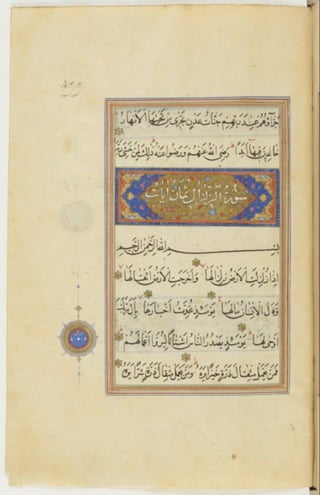 ٤٩٩
جَزَاؤُهُمْ عِنْدَ رَبِّهِمْ جَنَّاتُ عَدْنٍ تَجْرِى مِنْ تَحْتِهَا الْأَنْهَارُ
خَالِدِينَ فِيهَا أَبَدًا رَضِىَ اللَّهُ عَنْهُمْ وَرَضُوا عَنْهُ ذَلِكَ لِمَنْ خَشِىَ رَبَّهُ
سورة الزلزال ثمان آيات
بِسْمِ اللَّهِ الرَّحْمَنِ الرَّحِيمِ
إِذَا زُلْزِلَتِ الْأَرْضُ زِلْزَالَهَا وَأَخْرَجَتِ الْأَرْضُ أَثْقَالَهَا
وَقَالَ الْإِنْسَانُ مَا لَهَا يَوْمَئِذٍ تُحَدِّثُ أَخْبَارَهَا بِأَنَّ رَبَّكَ
أَوْحَى لَهَا يَوْمَئِذٍ يَصْدُرُ النَّاسُ أَشْتَاتًا لِيُرَوْا أَعْمَالَهُمْ
فَمَنْ يَعْمَلْ مِثْقَالَ ذَرَّةٍ خَيْرًا يَرَهُ وَمَنْ يَعْمَلْ مِثْقَالَ ذَرَّةٍ شَرًّا يَرَهُ